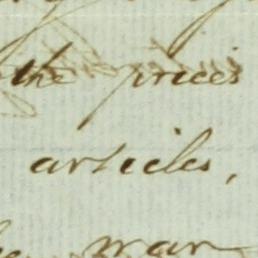 the prices
articles,
war